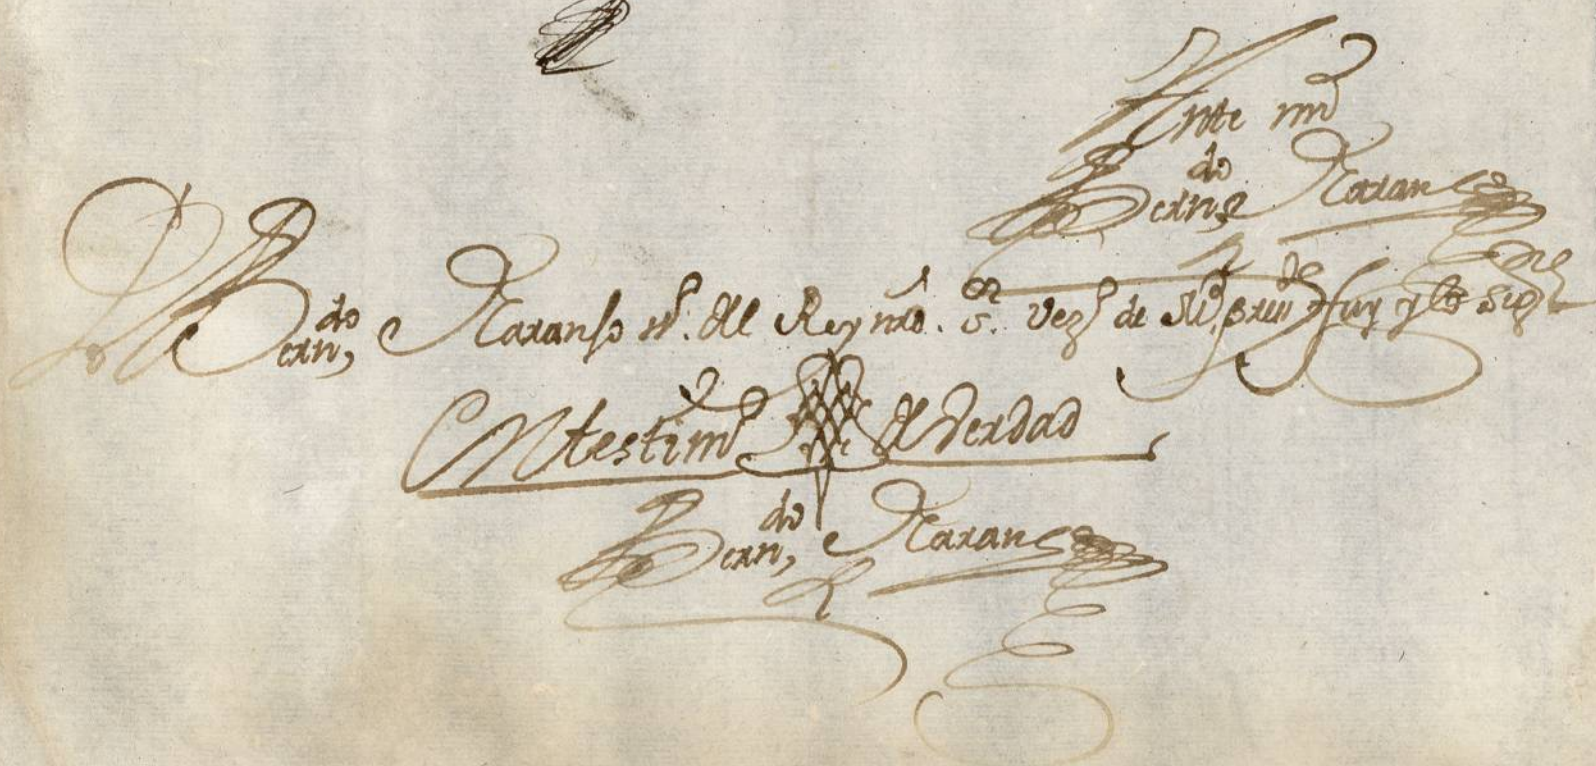 Ante mi
Bern,do Naranjo
Bern,do Naranjo n.o del Rey nro. s.or vez.o de presente fuy y lo sig.e
En testim.o de verdad
Bern,do Naranjo